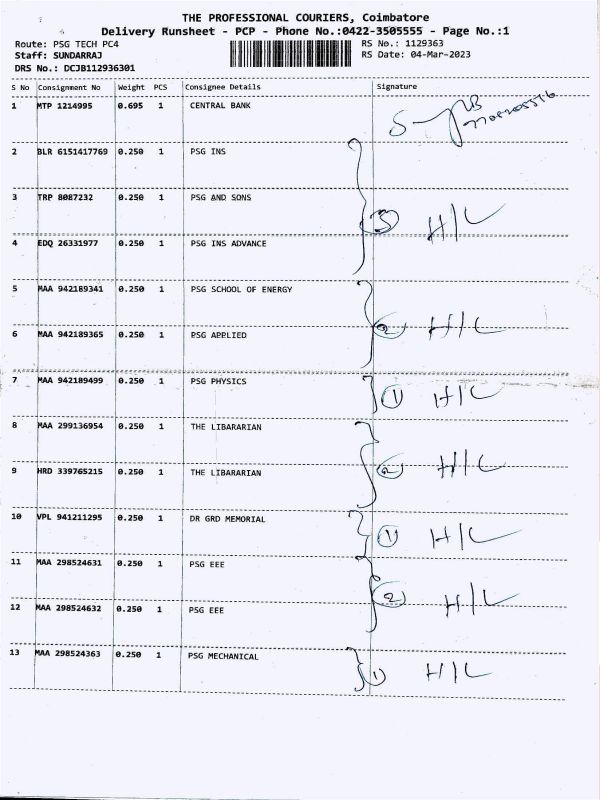 THE PROFESSIONAL COURIERS, Coimbatore
Delivery Runsheet - PCP - Phone No.:0422-3505555 - Page No.:1
Route: PSG TECH PC4 RS No.: 1129363
Staff: SUNDARRAJ RS Date: 04-Mar-2023
DRS No.: DCJB112936301
S No Consignment No Weight PCS Consignee Details Signature
1 MTP 1214995 0.695 1 CENTRAL BANK
2 BLR 6151417769 0.250 1 PSG INS
3 TRP 8087232 0.250 1 PSG AND SONS
3 H/L
4 EDQ 26331977 0.250 1 PSG INS ADVANCE
5 MAA 942189341 0.250 1 PSG SCHOOL OF ENERGY
6 MAA 942189365 0.250 1 PSG APPLIED 2 H/L
7 MAA 942189499 0.250 1 PSG PHYSICS 1 H/L
8 MAA 299136954 0.250 1 THE LIBARARIAN
9 HRD 339765215 0.250 1 THE LIBARARIAN 2 H/L
10 VPL 941211295 0.250 1 DR GRD MEMORIAL 1 H/L
11 MAA 298524631 0.250 1 PSG EEE
2 H/L
12 MAA 298524632 0.250 1 PSG EEE
13 MAA 298524363 0.250 1 PSG MECHANICAL 1 H/L